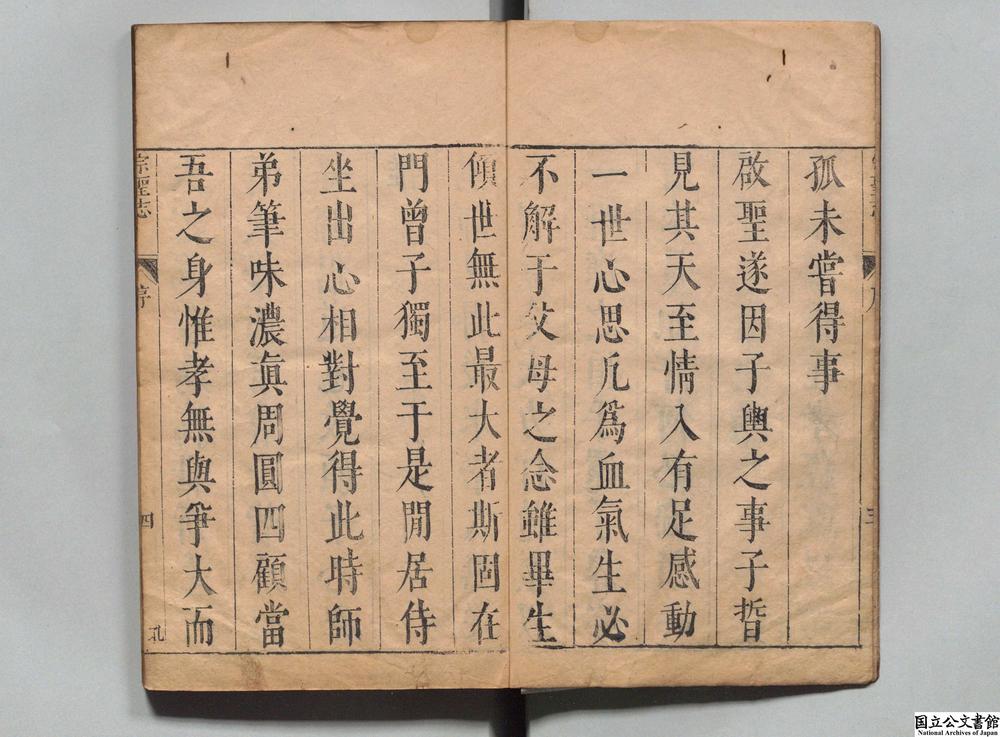 孤未嘗得事
啟聖遂因子輿之事子晳
見其天至情入有足感動
一世心思凢爲血氣生必
不解于父母之念雖畢生
傾世無此最大者斯固在
門曾子獨至于是閒居侍
坐出心相對覺得此時師
弟筆味濃眞周圓四顧當
吾之身惟孝無與爭大而
宗聖志
序
四
孔
国立公文書館
National Archives of Japan